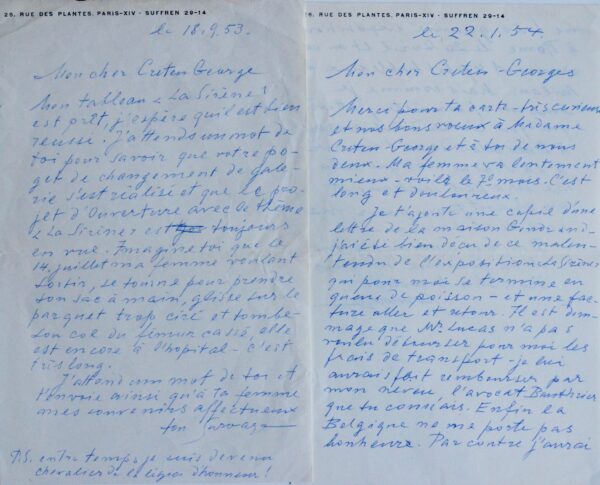 26, RUE DES PLANTES, PARIS-XIV - SUFFREN 29-14
le 18.9.53.
Mon cher Creten George
Mon tableau "La Sirène"
est prêt, j'espère qu'il est bien
reussie. J'attends un mot de
toi pour savoir que votre po-
get de changement de gale-
rie s'est réalisé et que le pro-
jet d'Ouverture avec le thème
"La Sirène" est toujours
en vue. Imagine toi que le
14 juillet ma femme voulant
sortir, se tourne pour prendre
son sac à main, glisse sur le
parquet trop ciré et tombe-
son col du femur cassé, elle
est encore à l'hopital - c'est
très long.
J'attend un mot de toi et
t'envoie ainsi qu'à ta femme
mes souvenirs affectueux
ton Survage
P.S. entre temps je suis devenu
chevalier de la légion d'honneur!
26, RUE DES PLANTES, PARIS-XIV - SUFFREN 29-14
le 22.1.54.
Mon cher Creten-Georges
Merci pour ta carte très curieuse
et nos bons voeux à Madame
Creten-George et à toi de nous
deux. Ma femme va lentement
mieux - voilà le 7e mois. C'est
long et douloureux.
Je t'ajoute une copie d'une
lettre de la maison
j'ai été bien déçu de ce malen-
tendu de l'exposition des Sirènes
qui pour moi se termine en
queue de poisson - et une fac-
ture aller et retour. Il est dom-
mage que Mr Lucas n'a pas
voulu débourser pour moi les
frais de transport - je lui
aurais fait rembourser par
mon neveu, l'avocat
que tu connais. Enfin la
Belgique ne me porte pas
bonheur. Par contre j'aurai